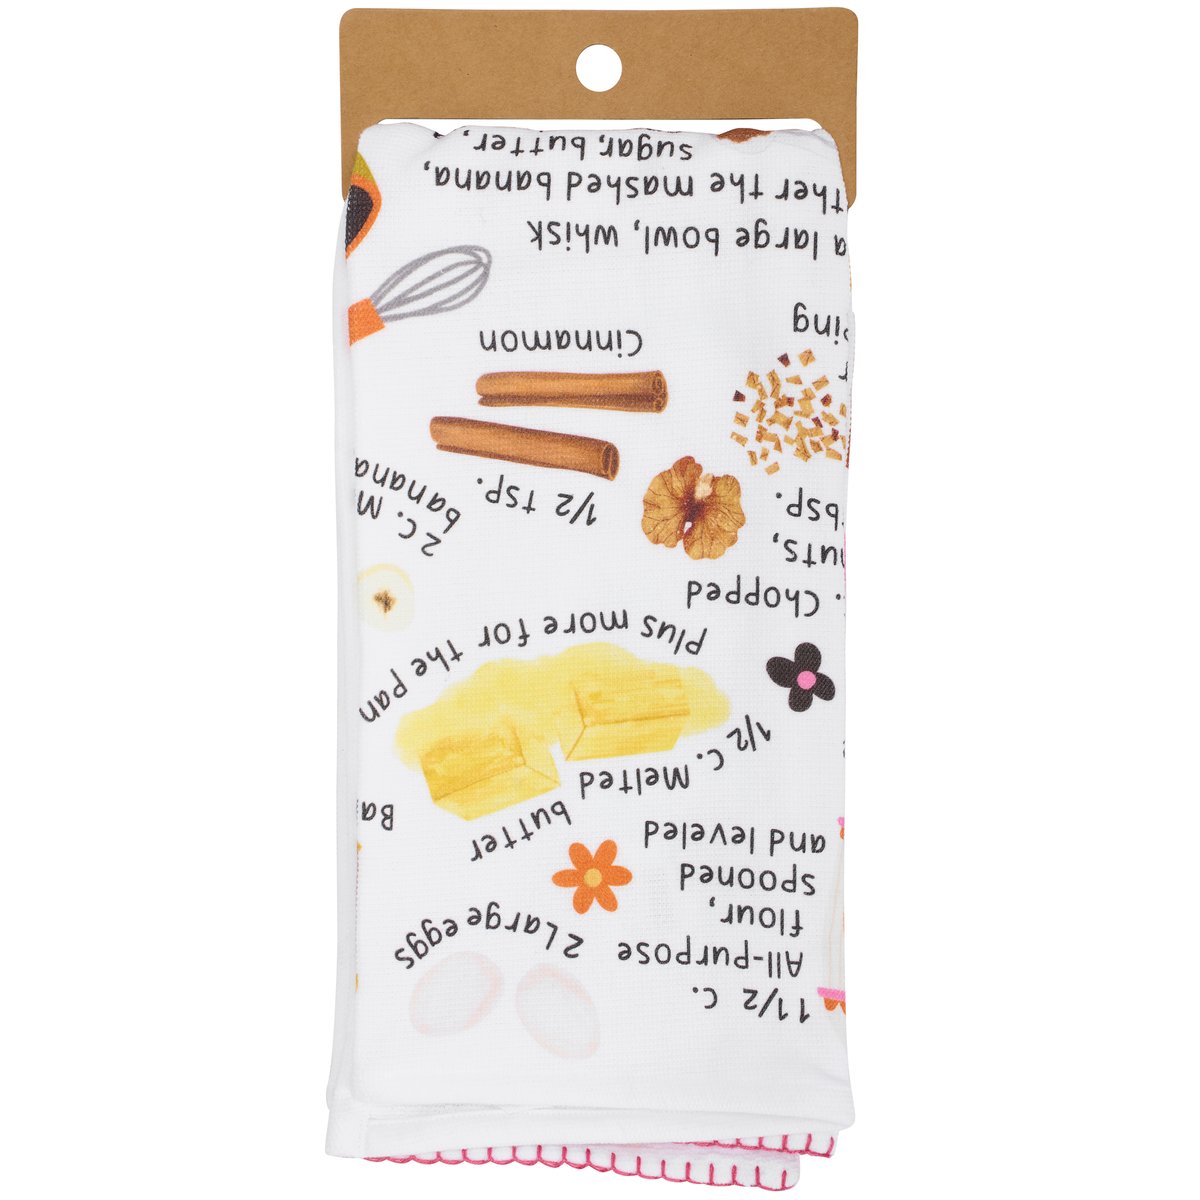 1 1/2 c.
All-purpose
flour,
spooned
and leveled
2 Large eggs
Ba
1/2 c. Melted butter
plus more for the pan
. Chopped
nuts,
bsp.
2 C. M
banana
1/2 tsp.
Cinnamon
r
ping
a large bowl, whisk
ther the mashed banana,
sugar, butter,